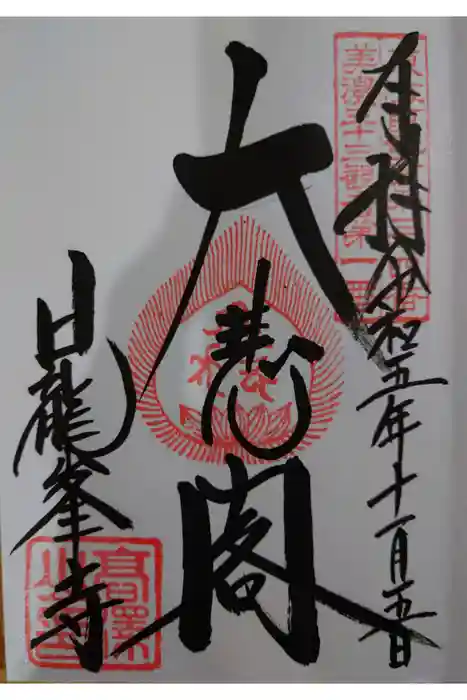 奉拝 令和五年十一月五日
美濃三十三觀音第一
大悲閣
日龍峯寺
高澤